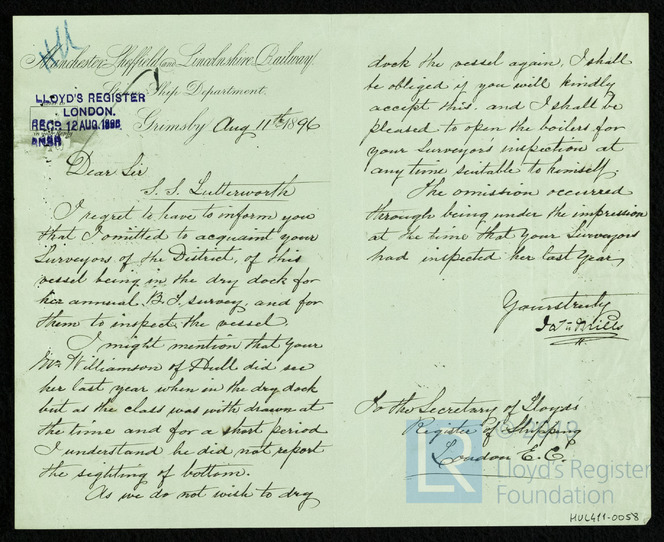 Hull
Manchester, Sheffield and Lincolnshire Railway.
Ship Department.
LLOYD'S REGISTER
LONDON.
RECD 12 AUG. 1896
ANSD
Grimsby Aug 11th 1896
Dear Sir
S. S. Lutterworth
I regret to have to inform you
that I omitted to acquaint your
Surveyors of the District, of this
vessel being in the dry dock for
her annual B. T. survey, and for
them to inspect the vessel.
I might mention that your
Mr Williamson of Hull did see
her last year when in the dry dock
but as the class was with drawn at
the time and for a short period
I understand he did not report
the sighting of bottom.
As we do not wish to dry
dock the vessel again, I shall
be obliged if you will kindly
accept this, and I shall be
pleased to open the boilers for
your Surveyors inspection at
any time suitable to himself.
The omission occurred
through being under the impression
at the time that your Surveyors
had inspected her last year,
Yours truly
Mills
To the Secretary of Lloyds'
Register of Shipping
London E.C.
© 2019
LR
Lloyd's Register
Foundation
HUL411-0058